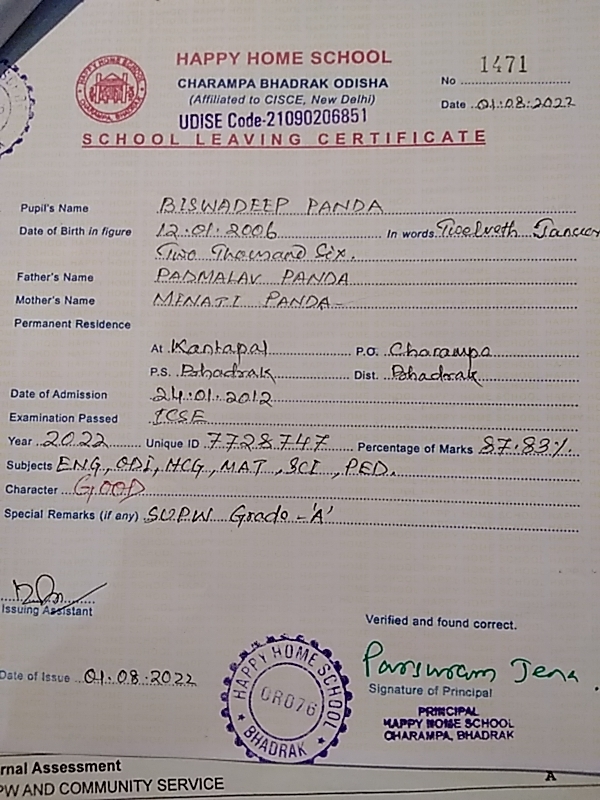 HAPPY HOME SCHOOL
CHARAMPA BHADRAK ODISHA
(Affiliated to CISCE, New Delhi)
UDISE Code-21090206851
No 1471
Date 01.08.2022
SCHOOL LEAVING CERTIFICATE
Pupil's Name BISWADEEP PANDA
Date of Birth in figure 12.01.2006 In words Twelveth
Two Thousand Six.
Father's Name PADMALAV PANDA
Mother's Name MINATI PANDA
Permanent Residence
At Kantapal P.O. Charampa
P.S. Bhadrak Dist. Bhadrak
Date of Admission 24.01.2012
Examination Passed ICSE
Year 2022 Unique ID 7728747 Percentage of Marks 87.83%
Subjects ENG, ODI, HCG, MAT, SCI, PED.
Character GOOD
Special Remarks (if any) SUPW Grade - 'A'
Issuing Assistant
Verified and found correct.
Parsuram Jena
Signature of Principal
Date of Issue 01.08.2022
HAPPY HOME SCHOOL
OR076
BHADRAK
PRINCIPAL
HAPPY HOME SCHOOL
CHARAMPA, BHADRAK
rnal Assessment
PW AND COMMUNITY SERVICE A